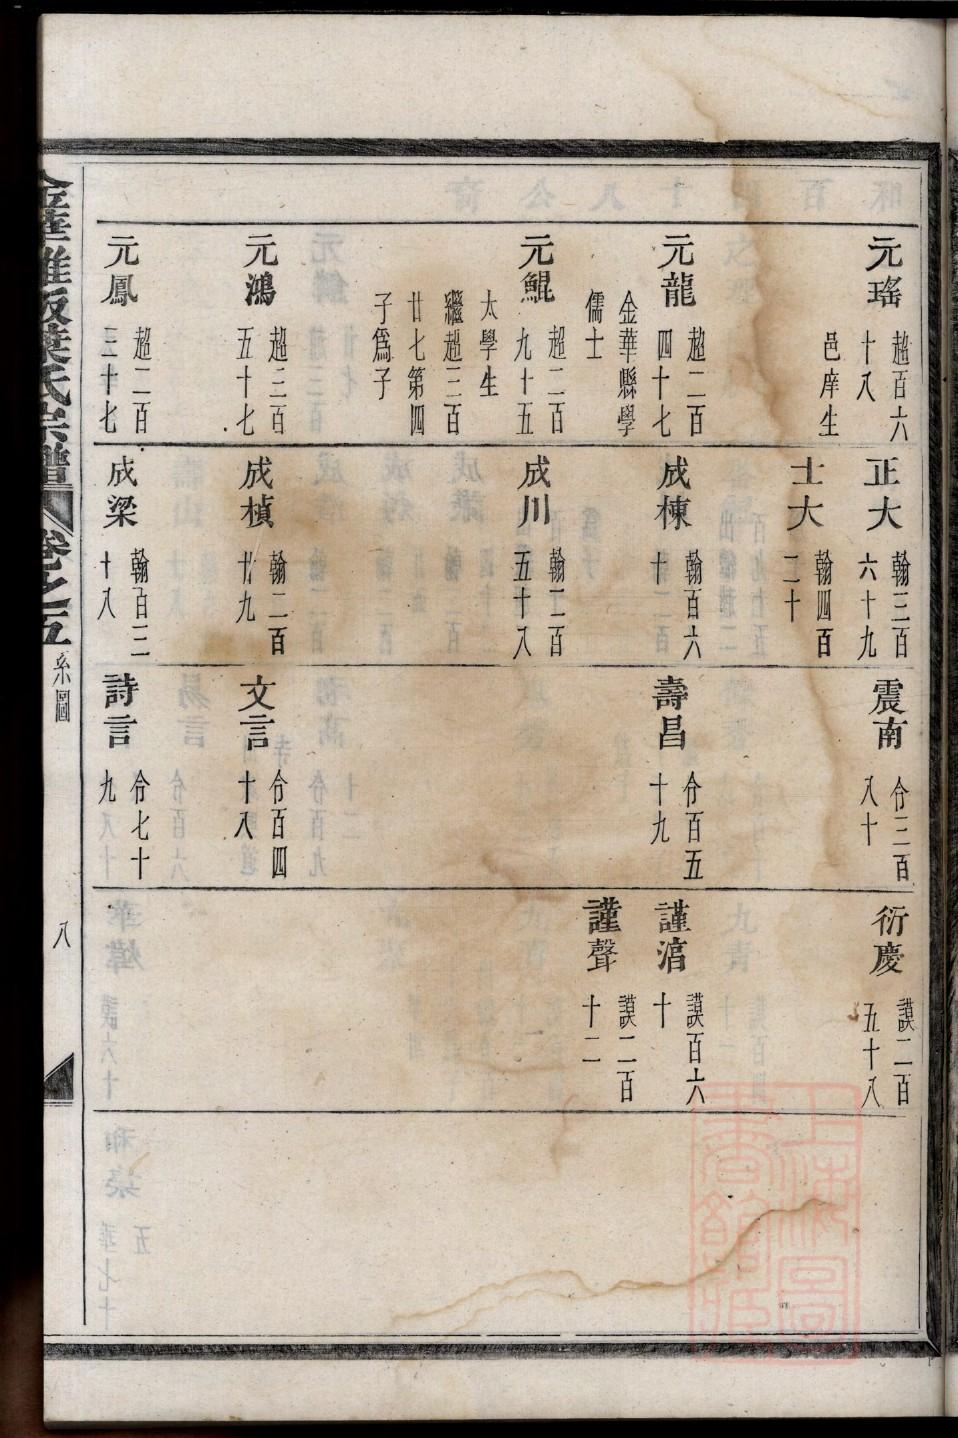 元瑤 超百六十八 邑庠生
元龍 超二百四十七 金華縣學儒士
元鯤 超二百九十五 太學生 繼超三百廿七第四子爲子
元鴻 超三百五十七
元鳳 超二百三十七
正大 翰三百六十九
士大 翰四百二十
成棟 翰百六十
成川 翰二百五十八
成楨 翰二百廿九
成梁 翰百三十八
震南 份三百八十
壽昌 份百五十九
文言 份百四十八
詩言 份七十九
衍慶 謨二百五十八
謹涫 謨百六十
謹聲 謨二百十二
卷之五 系圖
八